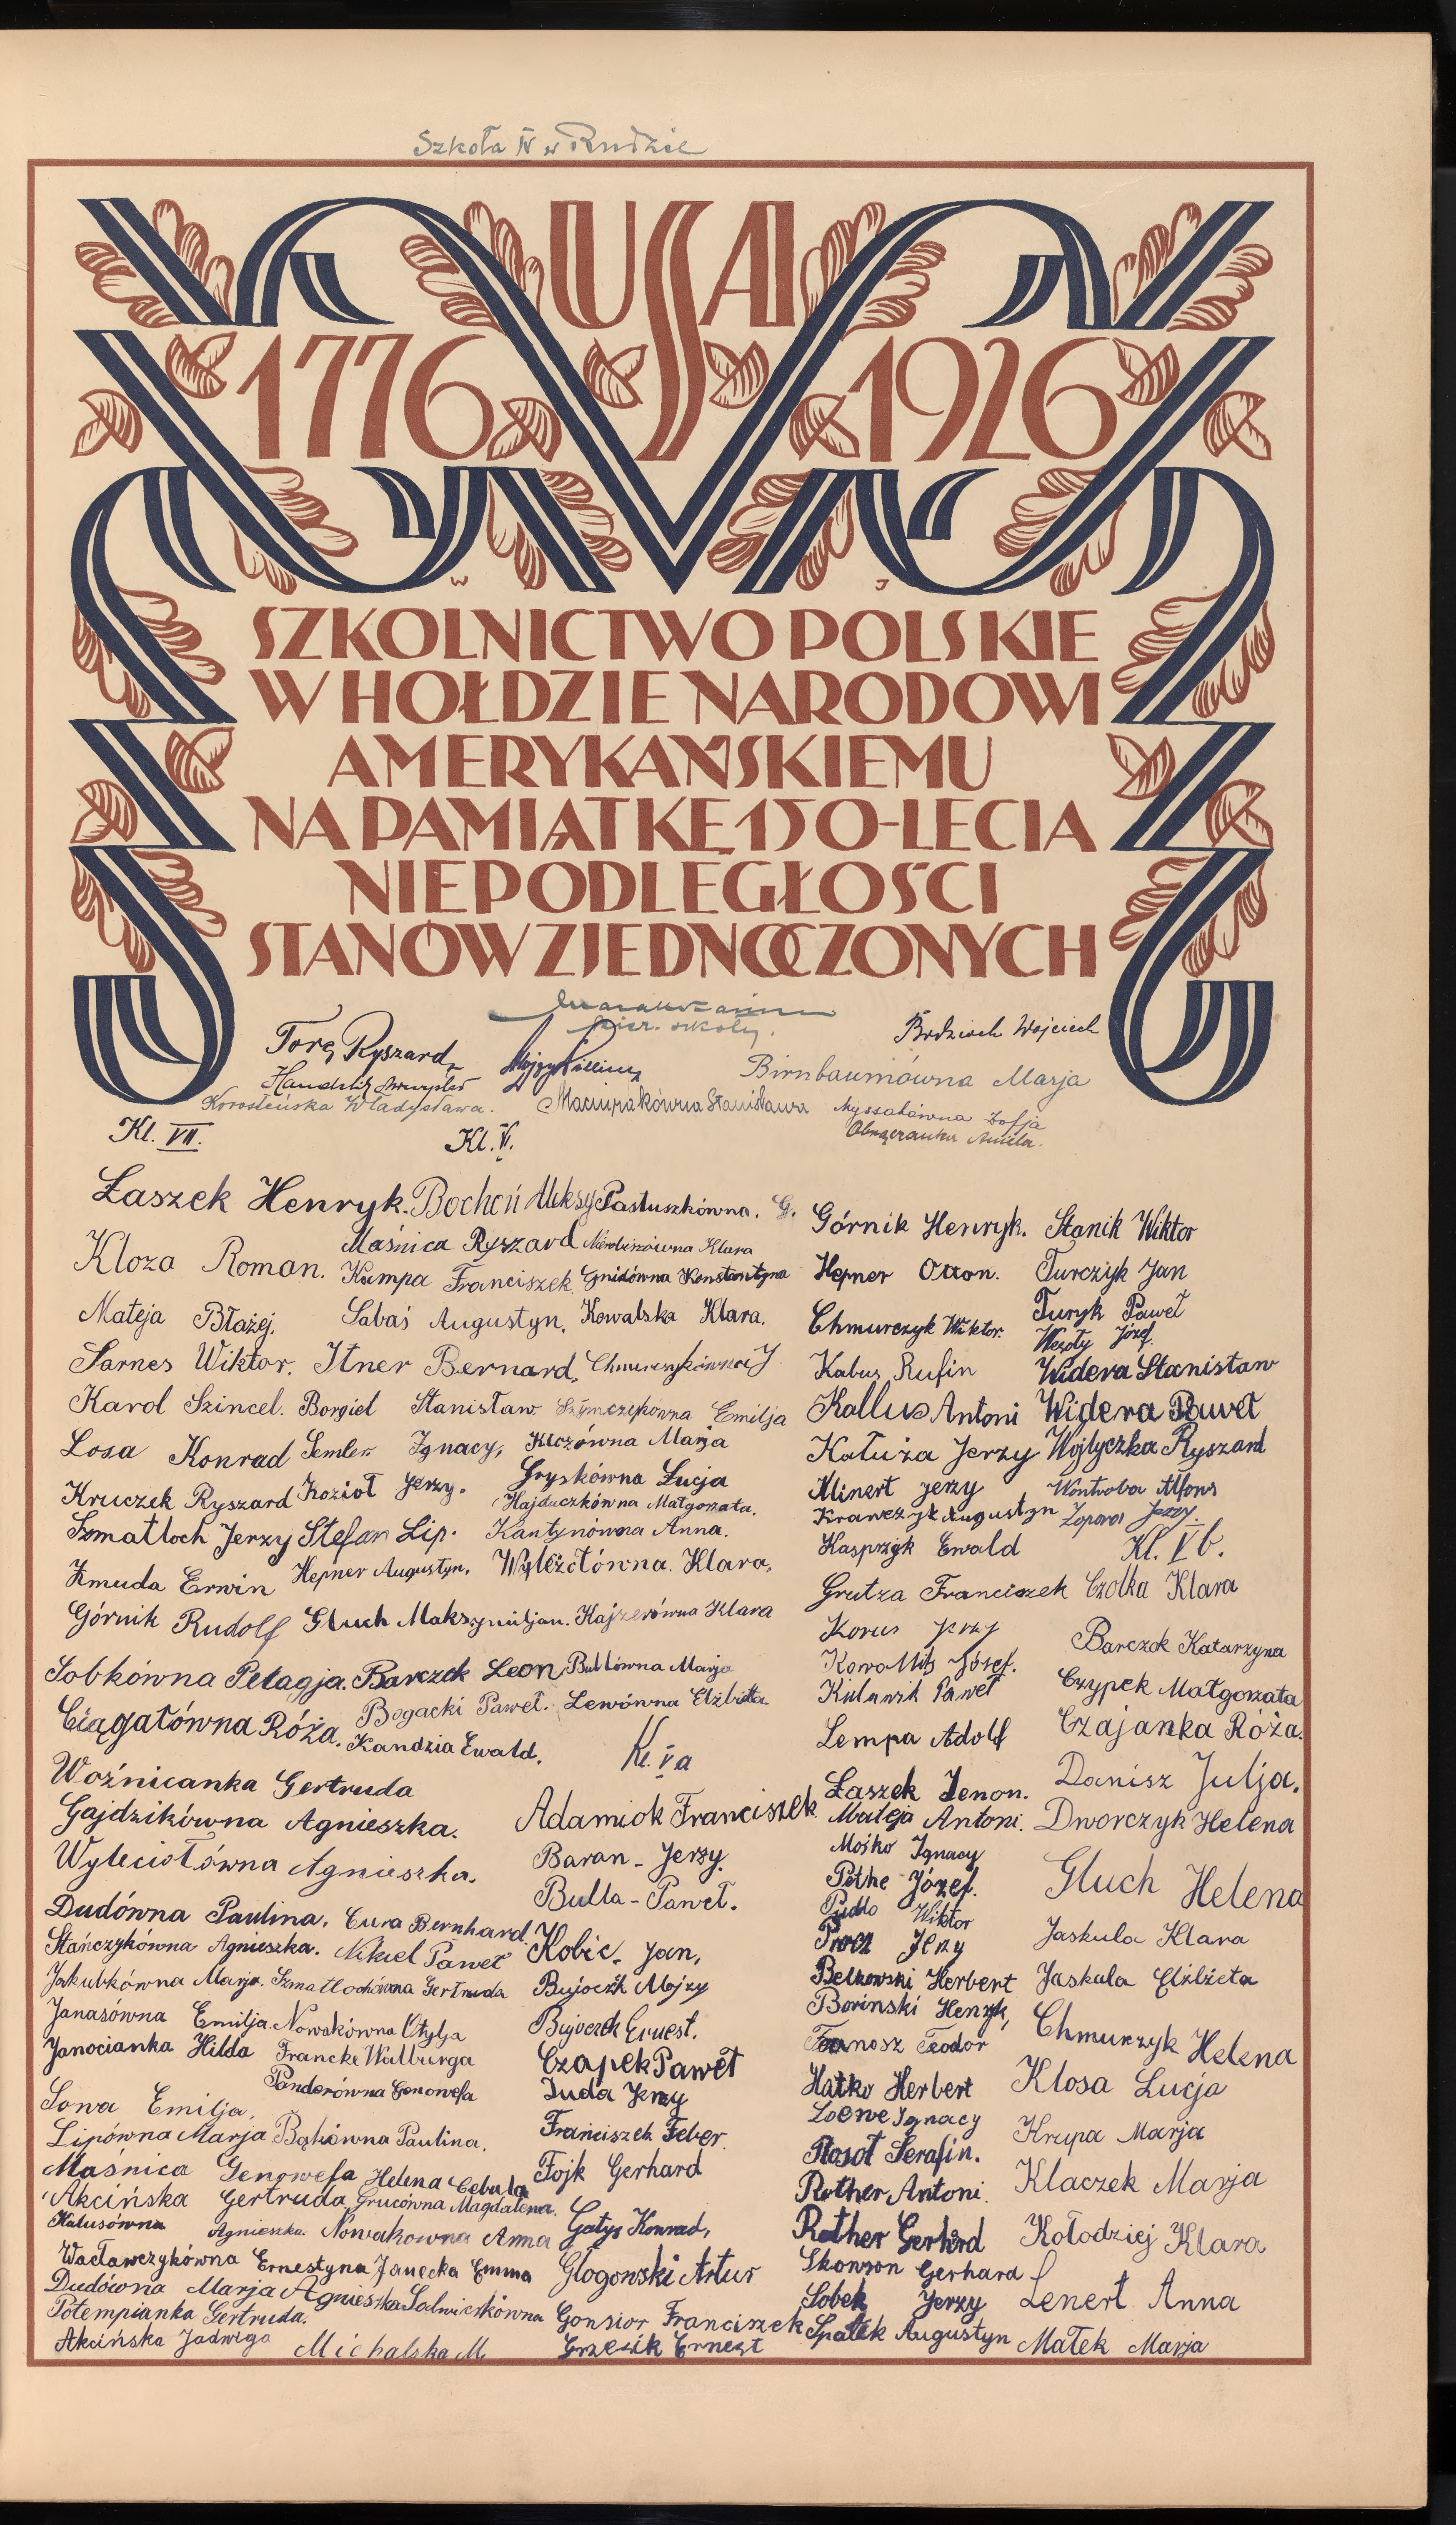 Szkoła IV w Rudzie
USA
1776 1926
W J
SZKOLNICTWO POLSKIE
W HOŁDZIE NARODOWI
AMERYKAŃSKIEMU
NA PAMIĄTKĘ 150-LECIA
NIEPODLEGŁOŚCI
STANÓW ZJEDNOCZONYCH
kier. szkoły.
Ryszard
Wojciech
Birnbaumówna Marja
Korosteńska Władysława.
Maciurakówna Stanisława
Zofja
Aniela.
Kl. VII.
Łaszek Henryk.
Kloza Roman.
Mateja Błażej.
Sarnes Wiktor.
Karol Szincel.
Losa Konrad
Kruczek Ryszard
Szmatloch Jerzy
Żmuda Erwin
Górnik Rudolf
Sobkówna Pelagja.
Ciągałówna Róża.
Woźnicanka Gertruda
Gajdzikówna Agnieszka.
Wyleciołówna Agnieszka.
Dudówna Paulina.
Stańczykówna Agnieszka.
Jakubkówna Marja.
Janasówna Emilja.
Janocianka Hilda
Sowa Emilja.
Lipówna Marja
Maśnica Genowefa
Akcińska Gertruda
Kalusówna Agnieszka.
Wacławczykówna Ernestyna
Dudówna Marja
Potempianka Gertruda.
Akcińska Jadwiga
Kl. VI.
Bochoń Aleksy
Maśnica Ryszard
Kampa Franciszek.
Sabaś Augustyn.
Itner Bernard.
Borgiel Stanisław
Semler Ignacy,
Kozioł Jerzy.
Stefan Lip.
Hepner Augustyn.
Gluch Maksymiljan.
Barczok Leon
Bogacki Paweł.
Kandzia Ewald.
Cura Bernhard.
Nikiel Paweł
Szmatlochówna Gertruda
Nowakówna Otylja
Francke Walburga
Panderówna Genowefa
Bąkówna Paulina.
Helena Cebula
Grucówna Magdalena.
Nowakowna Anna
Janecka Emma
Agnieszka Salwiczkówna
Michalska M.
Pastuszkówna. G.
Klara
Gnidówna Konstantyna
Kowalska Klara.
Chmurzykówna J
Szymczykówna Emilja
Klozówna Marja
Gryskówna Łucja
Hajduczkówna Małgorzata.
Kantynówna Anna.
Wyleżołówna. Klara,
Kajzerówna Klara
Bullówna Marja
Lewówna Elżbieta
Kl. Va
Adamiok Franciszek
Baran - Jerzy.
Bulla - Paweł.
Kobic. Jan,
Bujoczk Alojzy
Bujoczek Ernest.
Czapek Paweł
Duda Jerzy
Franciszek Feber.
Fojk Gerhard
Gatys Konrad,
Glogowski Artur
Gonsior Franciszek
Grzesik Ernest
Górnik Henryk.
Hepner Otton.
Chmurczyk Wiktor.
Kabus Rufin
Kallus Antoni
Kałuża Jerzy
Klinert Jerzy
Krawczyk Augustyn
Kasprzyk Ewald
Grutza Franciszek
Korus Jerzy
Józef.
Kulawik Paweł
Lempa Adolf
Łaszek Zenon.
Mateja Antoni.
Mośko Ignacy
Pethe Józef.
Pudlo Wiktor
Proch Jerzy
Belkowski Herbert
Borinski Henryk,
Teodor
Hatko Herbert
Loewe Ignacy
Rosół Serafin.
Rother Antoni.
Rother Gerhard
Skowron Gerhard
Sobek Jerzy
Spałek Augustyn
Stanik Wiktor
Turczyk Jan
Turyk Paweł
Wesoły Józef.
Widera Stanisław
Widera Paweł
Wojtyczka Ryszard
Wontroba Alfons
Jerzy.
Kl. Vb.
Czolka Klara
Barczok Katarzyna
Czypek Małgorzata
Czajanka Róża.
Danisz Julja.
Dworczyk Helena
Gluch Helena
Jaskula Klara
Jaskula Elżbieta
Chmurzyk Helena
Klosa Łucja
Krupa Marja
Klaczek Marja
Kołodziej Klara
Lenert Anna
Małek Marja